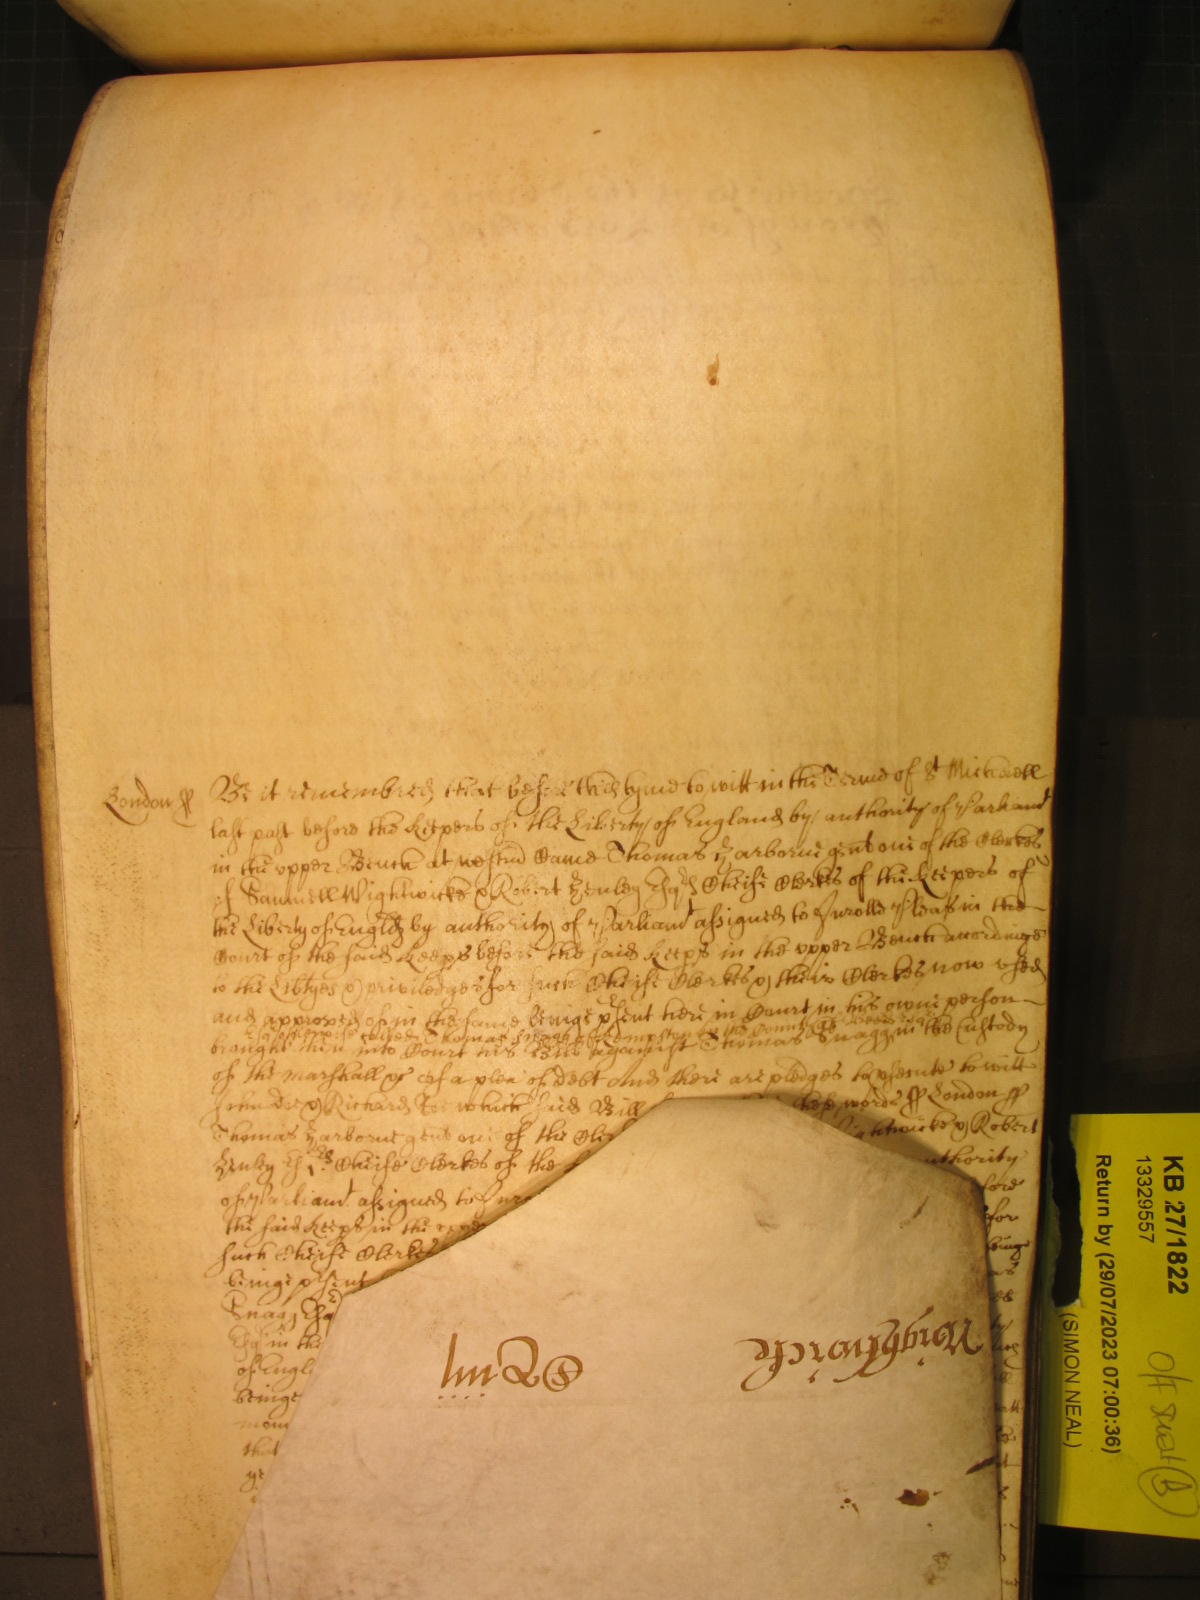 London ss
Be it remembred that before this tyme to witt in the Terme of St Michaell
last past before the Keepers of the Liberty of England by authority of Parliamt
in the upper Bench at Westmr Came Thomas Yarborne gent one of the Clerkes
of Samuell Wightwicke & Robert Henley Esqrs Cheife Clerkes of the Keepers of
the Liberty of Engld by authority of Parliamt assigned to Inrolle Pleas in the
Court of the said Keeps before the said Keeps in the upper Bench accordinge
to the Libtyes & priviledges for such Cheife Clerkes & their Clerkes now used
and approved of in the same beinge psent here in Court in his owne person
Thomas Snagg of Kempston in the County of
brought then into Court his Bill against Thomas Snagg in the Custody
of the Marshall &c of a plea of debt And there are pledges to psecute to witt
John Doe & Richard Roe which said Bill these words ss London ss
Thomas Yarborne gent one of the Cle ightwicke & Robert
Henley Esqrs Cheife Clerkes of the uthority
of Parliamt assigned to Inro fore
the said Keeps in the uppe for
such Cheife Clerkes beinge
beinge psent
Snagg Esq
Esq in the
of Engl
beinge
that
Wightwick
KB 27/1822
13329557
Return by (29/07/2023 07:00:36)
(SIMON NEAL)